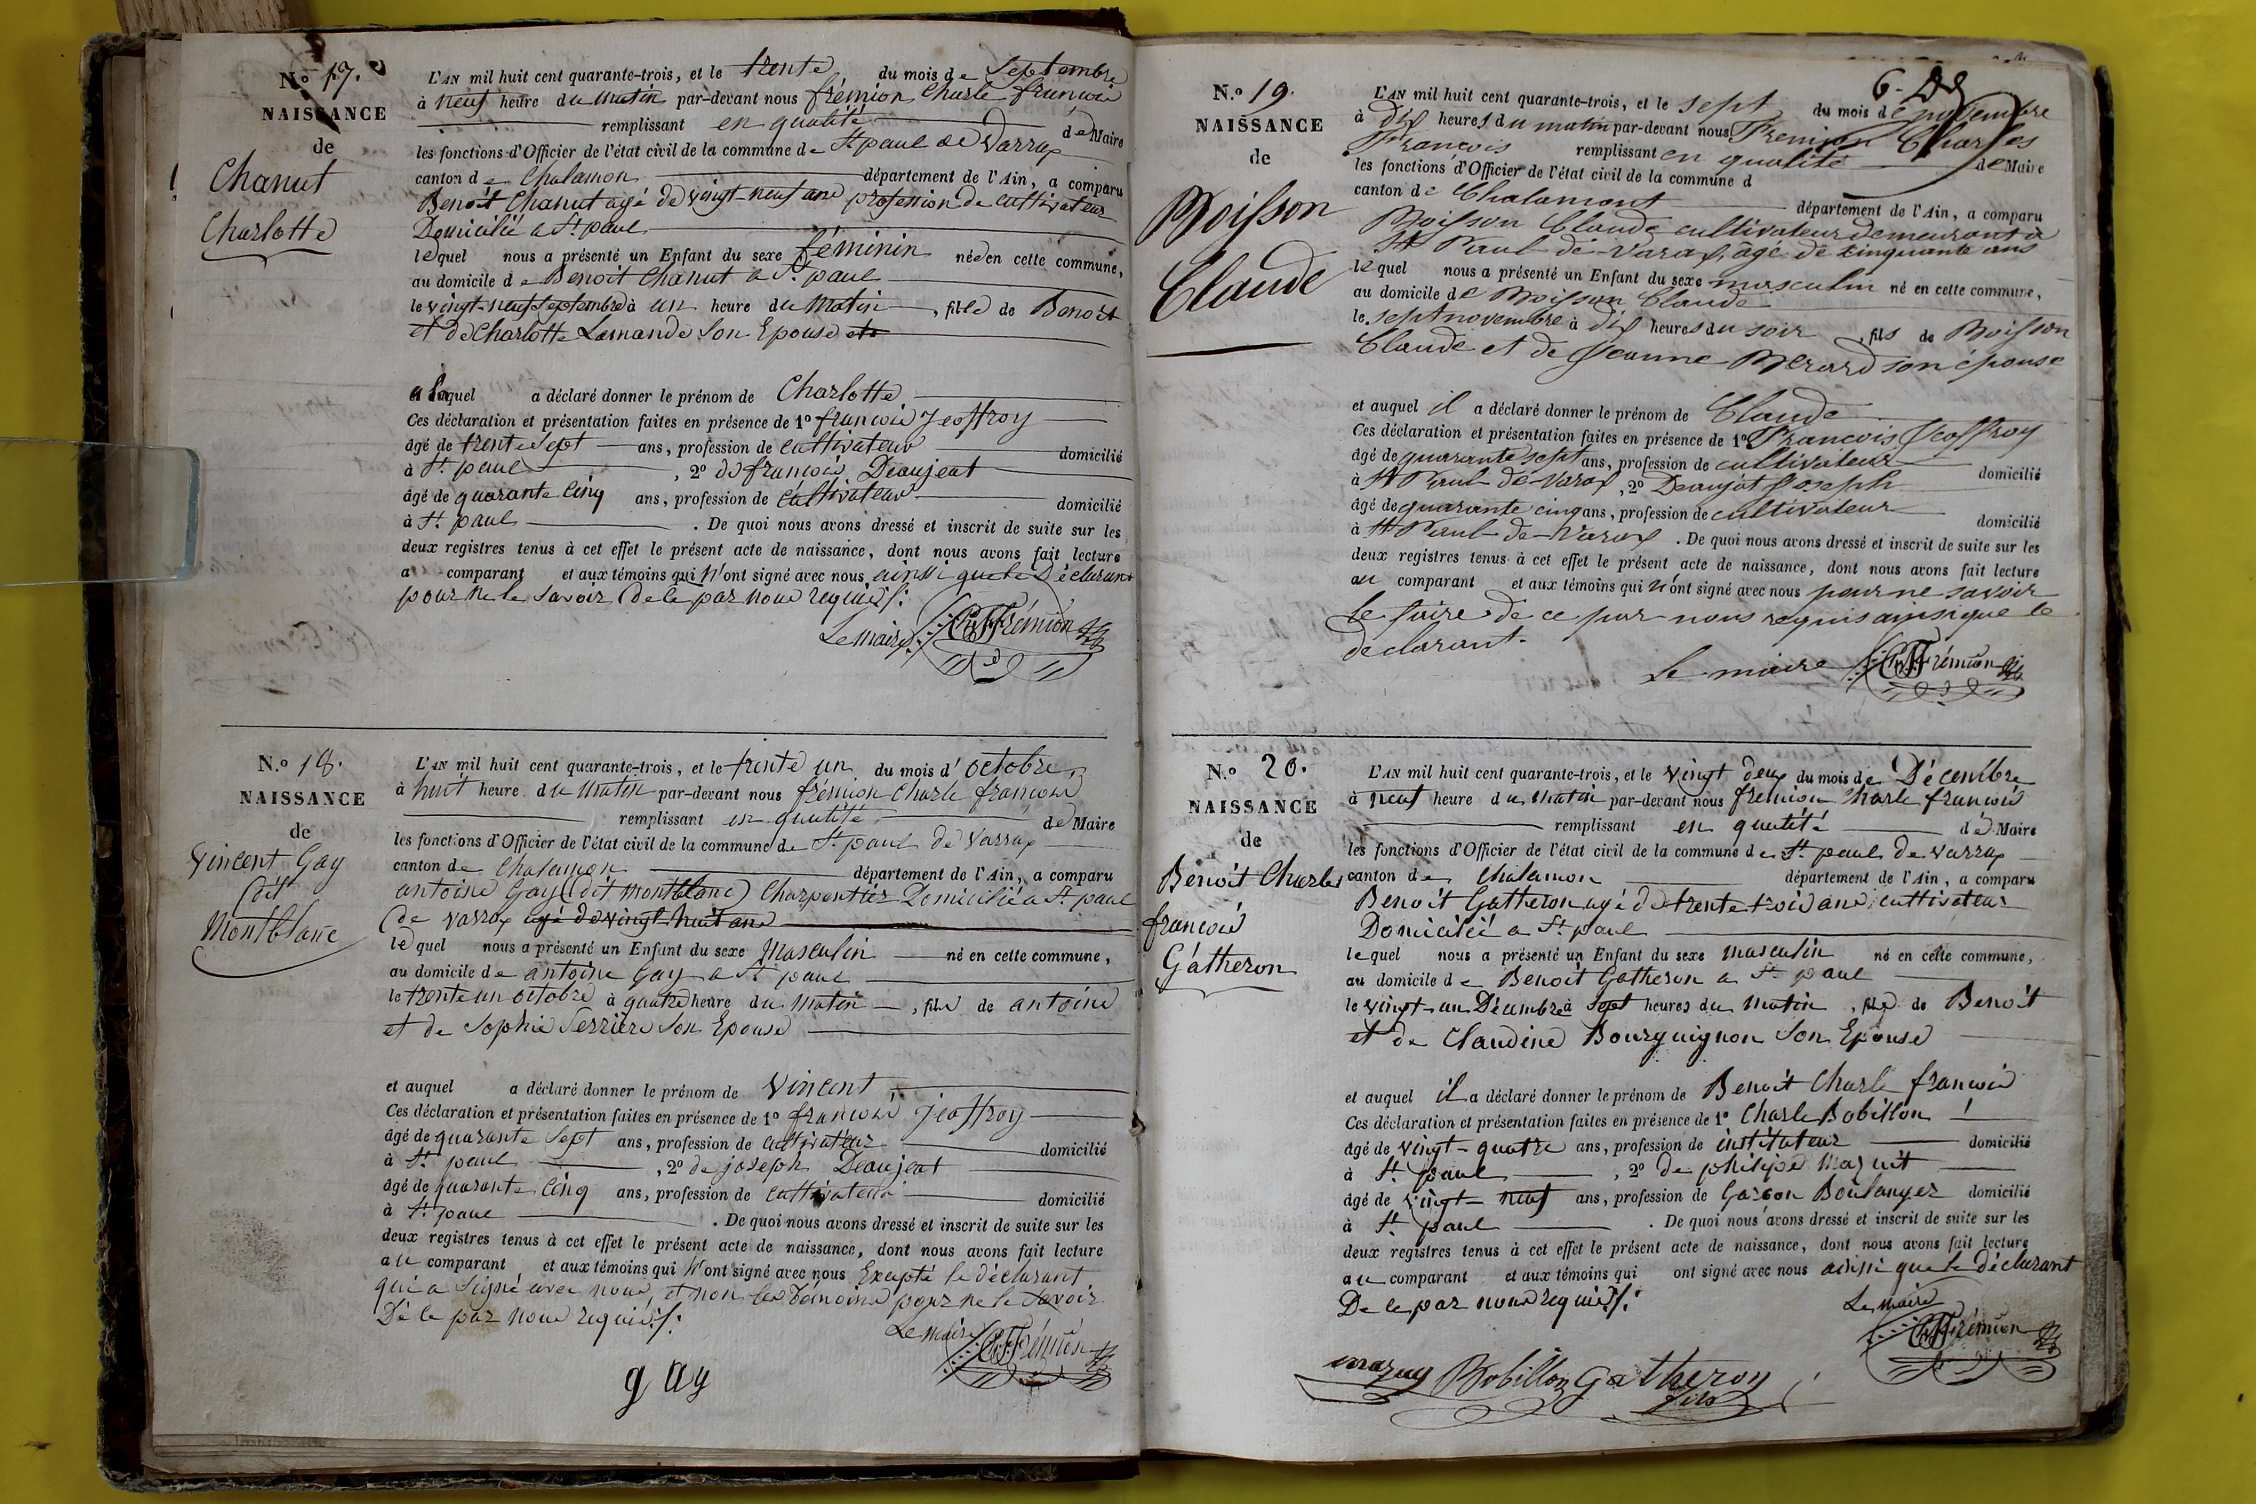 N.o 17.
NAISSANCE
de
Chanut
Charlotte
L'AN mil huit cent quarante-trois, et le trente du mois de Septembre
à neuf heure du matin par-devant nous frémion Charle françois
remplissant en qualité de Maire
les fonctions d'Officier de l'état civil de la commune de St paul de Varrax
canton de Chalamon département de l'Ain, a comparu
Benoît Chanut agé de vingt-neuf ans profession de cultivateur
Domicilié a St paul
lequel nous a présenté un Enfant du sexe féminin née en cette commune,
au domicile de Benoit Chanut a St paul
le vingt-neuf septembre à un heure du matin, fille de Benoit
et de Charlotte Lamande Son Epouse
a laquel a déclaré donner le prénom de Charlotte
Ces déclaration et présentation faites en présence de 1o françois Jeoffroy
âgé de trente Sept ans, profession de cultivateur domicilié
à St paul, 2o de françois Deaujeat
âgé de quarante Cinq ans, profession de Cultivateur domicilié
à St paul. De quoi nous avons dressé et inscrit de suite sur les
deux registres tenus à cet effet le présent acte de naissance, dont nous avons fait lecture
a comparant et aux témoins qui n'ont signé avec nous, ainsi que le Déclarant
pour ne le Savoir de ce par nous requis/:
Le maire CFFrémion
N.o 18.
NAISSANCE
de
Vincent Gay
(dit
Montblanc
L'AN mil huit cent quarante-trois, et le trente un du mois d'octobre
à huit heure du matin par-devant nous frémion Charle françois
remplissant en qualité de Maire
les fonctions d'Officier de l'état civil de la commune de St paul de Varrax
canton de Chalamon département de l'Ain, a comparu
antoine Gay (dit montblanc) Charpentier Domicilié a St paul
de Varrax agé de vingt-huit ans
le quel nous a présenté un Enfant du sexe Masculin né en cette commune,
au domicile de antoine Gay a St paul
le trente un octobre à quatre heure du matin, fils de antoine
et de Sophie Serriere Son Epouse
et auquel a déclaré donner le prénom de Vincent
Ces déclaration et présentation faites en présence de 1o françois jeoffroy
âgé de quarante Sept ans, profession de cultivateur domicilié
à St paul, 2o de joseph Deaujeat
âgé de quarante Cinq ans, profession de Cultivateur domicilié
à St paul. De quoi nous avons dressé et inscrit de suite sur les
deux registres tenus à cet effet le présent acte de naissance, dont nous avons fait lecture
au comparant et aux témoins qui n'ont signé avec nous Excepté le déclarant
qui a Signé avec nous et non les témoins pour ne le Savoir
De ce par nous requis/:
Le maire CFFrémion
gay
6-
N.o 19.
NAISSANCE
de
Moisson
Claude
L'AN mil huit cent quarante-trois, et le sept du mois de novembre
à dix heures du matin par-devant nous Fremion Charles
François remplissant en qualité de Maire
les fonctions d'Officier de l'état civil de la commune d
canton de Chalamont département de l'Ain, a comparu
Moisson Claude cultivateur demeurant à
St Paul de Varax, âgé de cinquante ans
lequel nous a présenté un Enfant du sexe masculin né en cette commune,
au domicile de Moisson Claude
le sept novembre à dix heures du soir, fils de Moisson
Claude et de Jeanne Merard son épouse
et auquel il a déclaré donner le prénom de Claude
Ces déclaration et présentation faites en présence de 1o François Jeoffroy
âgé de quarante sept ans, profession de cultivateur domicilié
à St Paul de Varax, 2o Deaujat Joseph
âgé de quarante cinq ans, profession de cultivateur domicilié
à St Paul de Varax. De quoi nous avons dressé et inscrit de suite sur les
deux registres tenus à cet effet le présent acte de naissance, dont nous avons fait lecture
au comparant et aux témoins qui n'ont signé avec nous pour ne savoir
le faire de ce par nous requis ainsi que le
declarant.
Le maire CFFrémion
N.o 20.
NAISSANCE
de
Benoit Charles
françois
Gatheron
L'AN mil huit cent quarante-trois, et le vingt deux du mois de Décembre
à neuf heure du matin par-devant nous frémion Charle françois
remplissant en qualité de Maire
les fonctions d'Officier de l'état civil de la commune de St paul de Varrax
canton de Chalamon département de l'Ain, a comparu
Benoit Gatheron agé de trente trois ans cultivateur
Domicilié a St paul
lequel nous a présenté un Enfant du sexe masculin né en cette commune,
au domicile de Benoit Gatheron a St paul
le vingt-un Décembre à sept heures du matin, fils de Benoit
et de Claudine Bourguignon Son Epouse
et auquel il a déclaré donner le prénom de Benoit Charle françois
Ces déclaration et présentation faites en présence de 1o Charle Bobillon
âgé de vingt-quatre ans, profession de instituteur domicilié
à St paul, 2o de philipe Mazuit
âgé de vingt-neuf ans, profession de Garçon Boulanger domicilié
à St paul. De quoi nous avons dressé et inscrit de suite sur les
deux registres tenus à cet effet le présent acte de naissance, dont nous avons fait lecture
au comparant et aux témoins qui ont signé avec nous ainsi que le déclarant
De ce par nous requis/:
Le maire CFFrémion
mazuy Bobillon Gatheron
fils